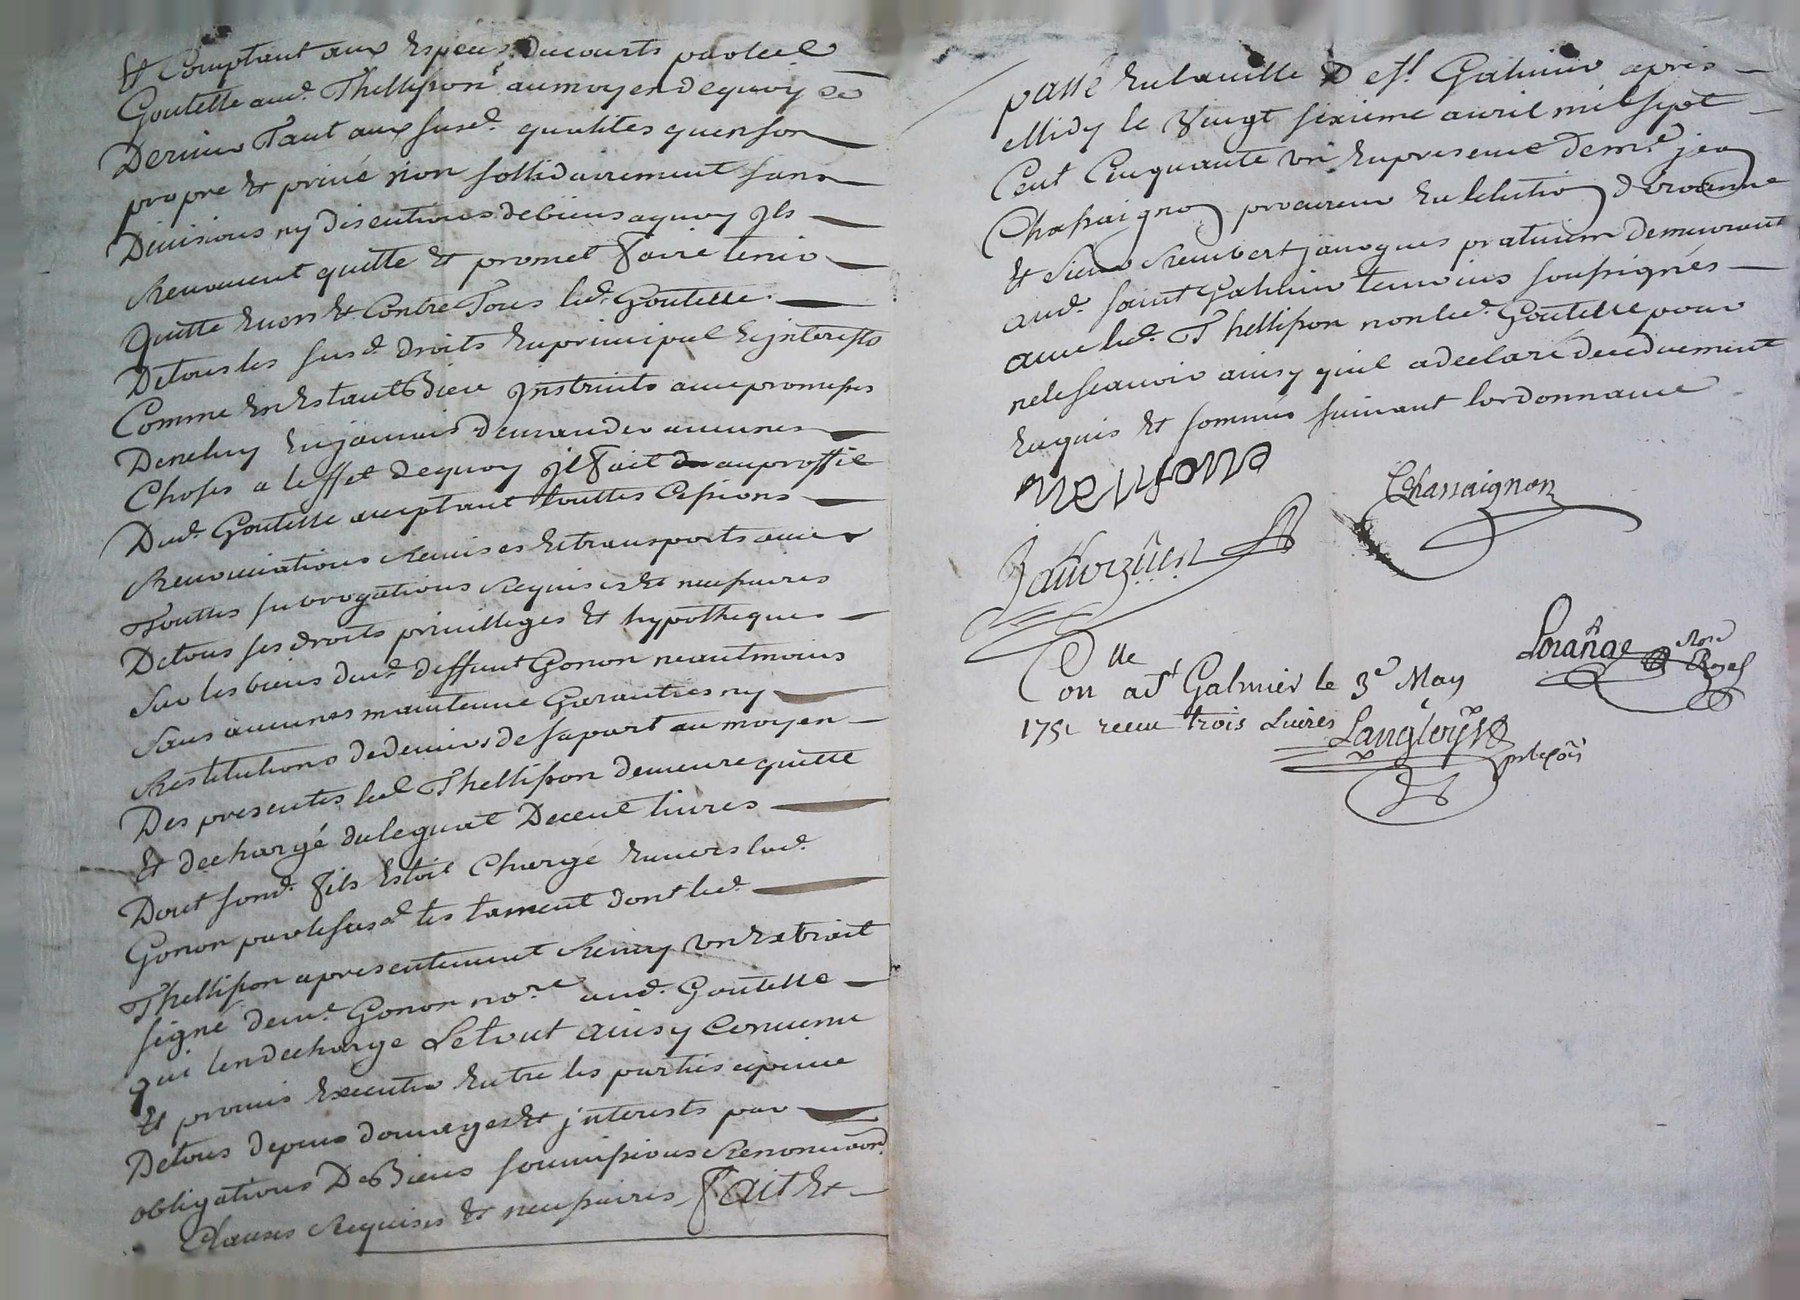 Et Comptant aux Especes du courts par led
Goutelle aud. Thellisson au moyen de quoy ce
Dernier Tant aux susd. qualites quen son
propre et privé nom sollidairement sans
Divisions ny discutions de biens a quoy Ils
Renoncent quitte et promet faire tenir
quitte Envers et Contre Tous led. Goutelle
De tous les susd. droits En principal Et jnterests
Comme En Estant Bien jnstruits avec promesses
De ne luy En jamais demander aucunes
Choses a leffet de quoy jl fait au proffit
Dud. Goutelle acceptant touttes Cessions
Renonciations Remises Et transports avec
Touttes subrogations Requises Et necessaires
De tous ses droits privilleges Et hypotheques
Sur les biens dud. deffunt Gonon neantmoins
Sans aucunes maintenue Garanties ny
Restitutions de deniers de sa part au moyen
Des presentes led Thellisson demeure quitte
Et dechargé du legat De cent livres
Dont sond. fils Estoit Chargé Envers lad.
Gonon par le susd. testament dont led.
Thellisson a presentement Remy un Extrait
signé de me. Gonon nore. aud. Goutelle
qui len decharge Le tout ainsy Convenu
Et promis Executer Entre les parties a peine
De tous depens domages Et jnterests par
obligations De Biens soumissions Renonciaõns
Clauses Requises Et necessaires Fait Et
passé En la ville De st. Galmier apres
Midy le vingt sixieme avril mil sept
Cent Cinquante un En presence de me. jean
Chassaignon procureur En lelection de roanne
Et sieur Rembert janoques praticien demeurant
aud. saint Galmier temoins soussignés
avec led. Thellisson non led. Goutelle pour
ne le scavoir ainsy quil a declaré de ce duement
Enquis Et sommé suivant lordonnance
Chassaignon
Lorange Nore Royal
Con
lle
a st Galmier le 3e May
1751 recu trois Livres Langloys